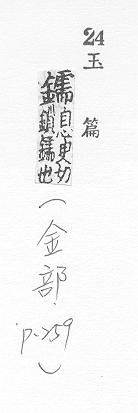 24
玉篇
鑐
息臾切
鎖鑐也
(金部. p.259)